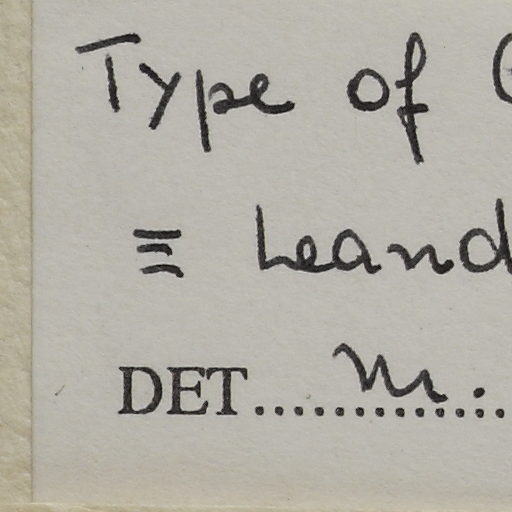 Type of
≡ Leand
DET.............. M.